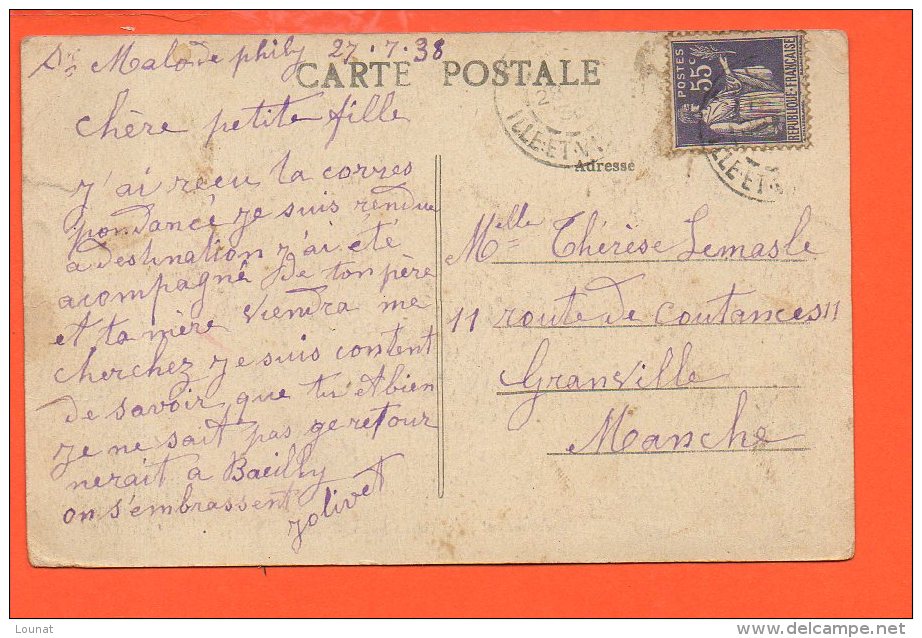 St Malo de phily 27.7.38
CARTE POSTALE
chère petite fille
j'ai reçu ta corres
pondance je suis rendue
a destination j'ai été
acompagné De ton père
et ta mère viendra me
cherchez je suis content
de savoir que tu et bien
je ne sait pas ge retour
nerait a Baeilly
on s'embrassent
Jolivet
POSTES
55c
REPUBLIQUE·FRANÇAISE
ILLE-ET-V
ILLE-ET-V
Adresse
Melle Thérèse Lemasle
11 route de Coutances 11
Granville
Manche
Lounat
www.delcampe.net